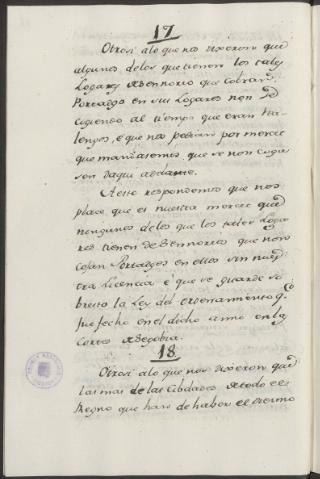 17
Otrosi alo que nos dixeron que
algunos delos que tienen los tales
Logares de Sennorio que cobran
Portadgo en sus Logares non se
cogiendo al tiempo que eran Rea
lengos, e que nos pedian por merced
que mandasemos que se non cogie
sen daqui adelante.
A esto respondemos que nos
place que es nuestra merced que
nengunos delos que los tales Loga
res tienen de Sennorios que non
cojan Portadgos en ellos sin nues
tra Licencia é que se guarde so
bresto la Ley del ordenamiento q.e
fue fecho en el dicho anno en las
Cortes de Segobia.
18
Otrosi alo que nos dixeron que
las mas de las Cibdades de todo el
Regno que han de haber el diesmo